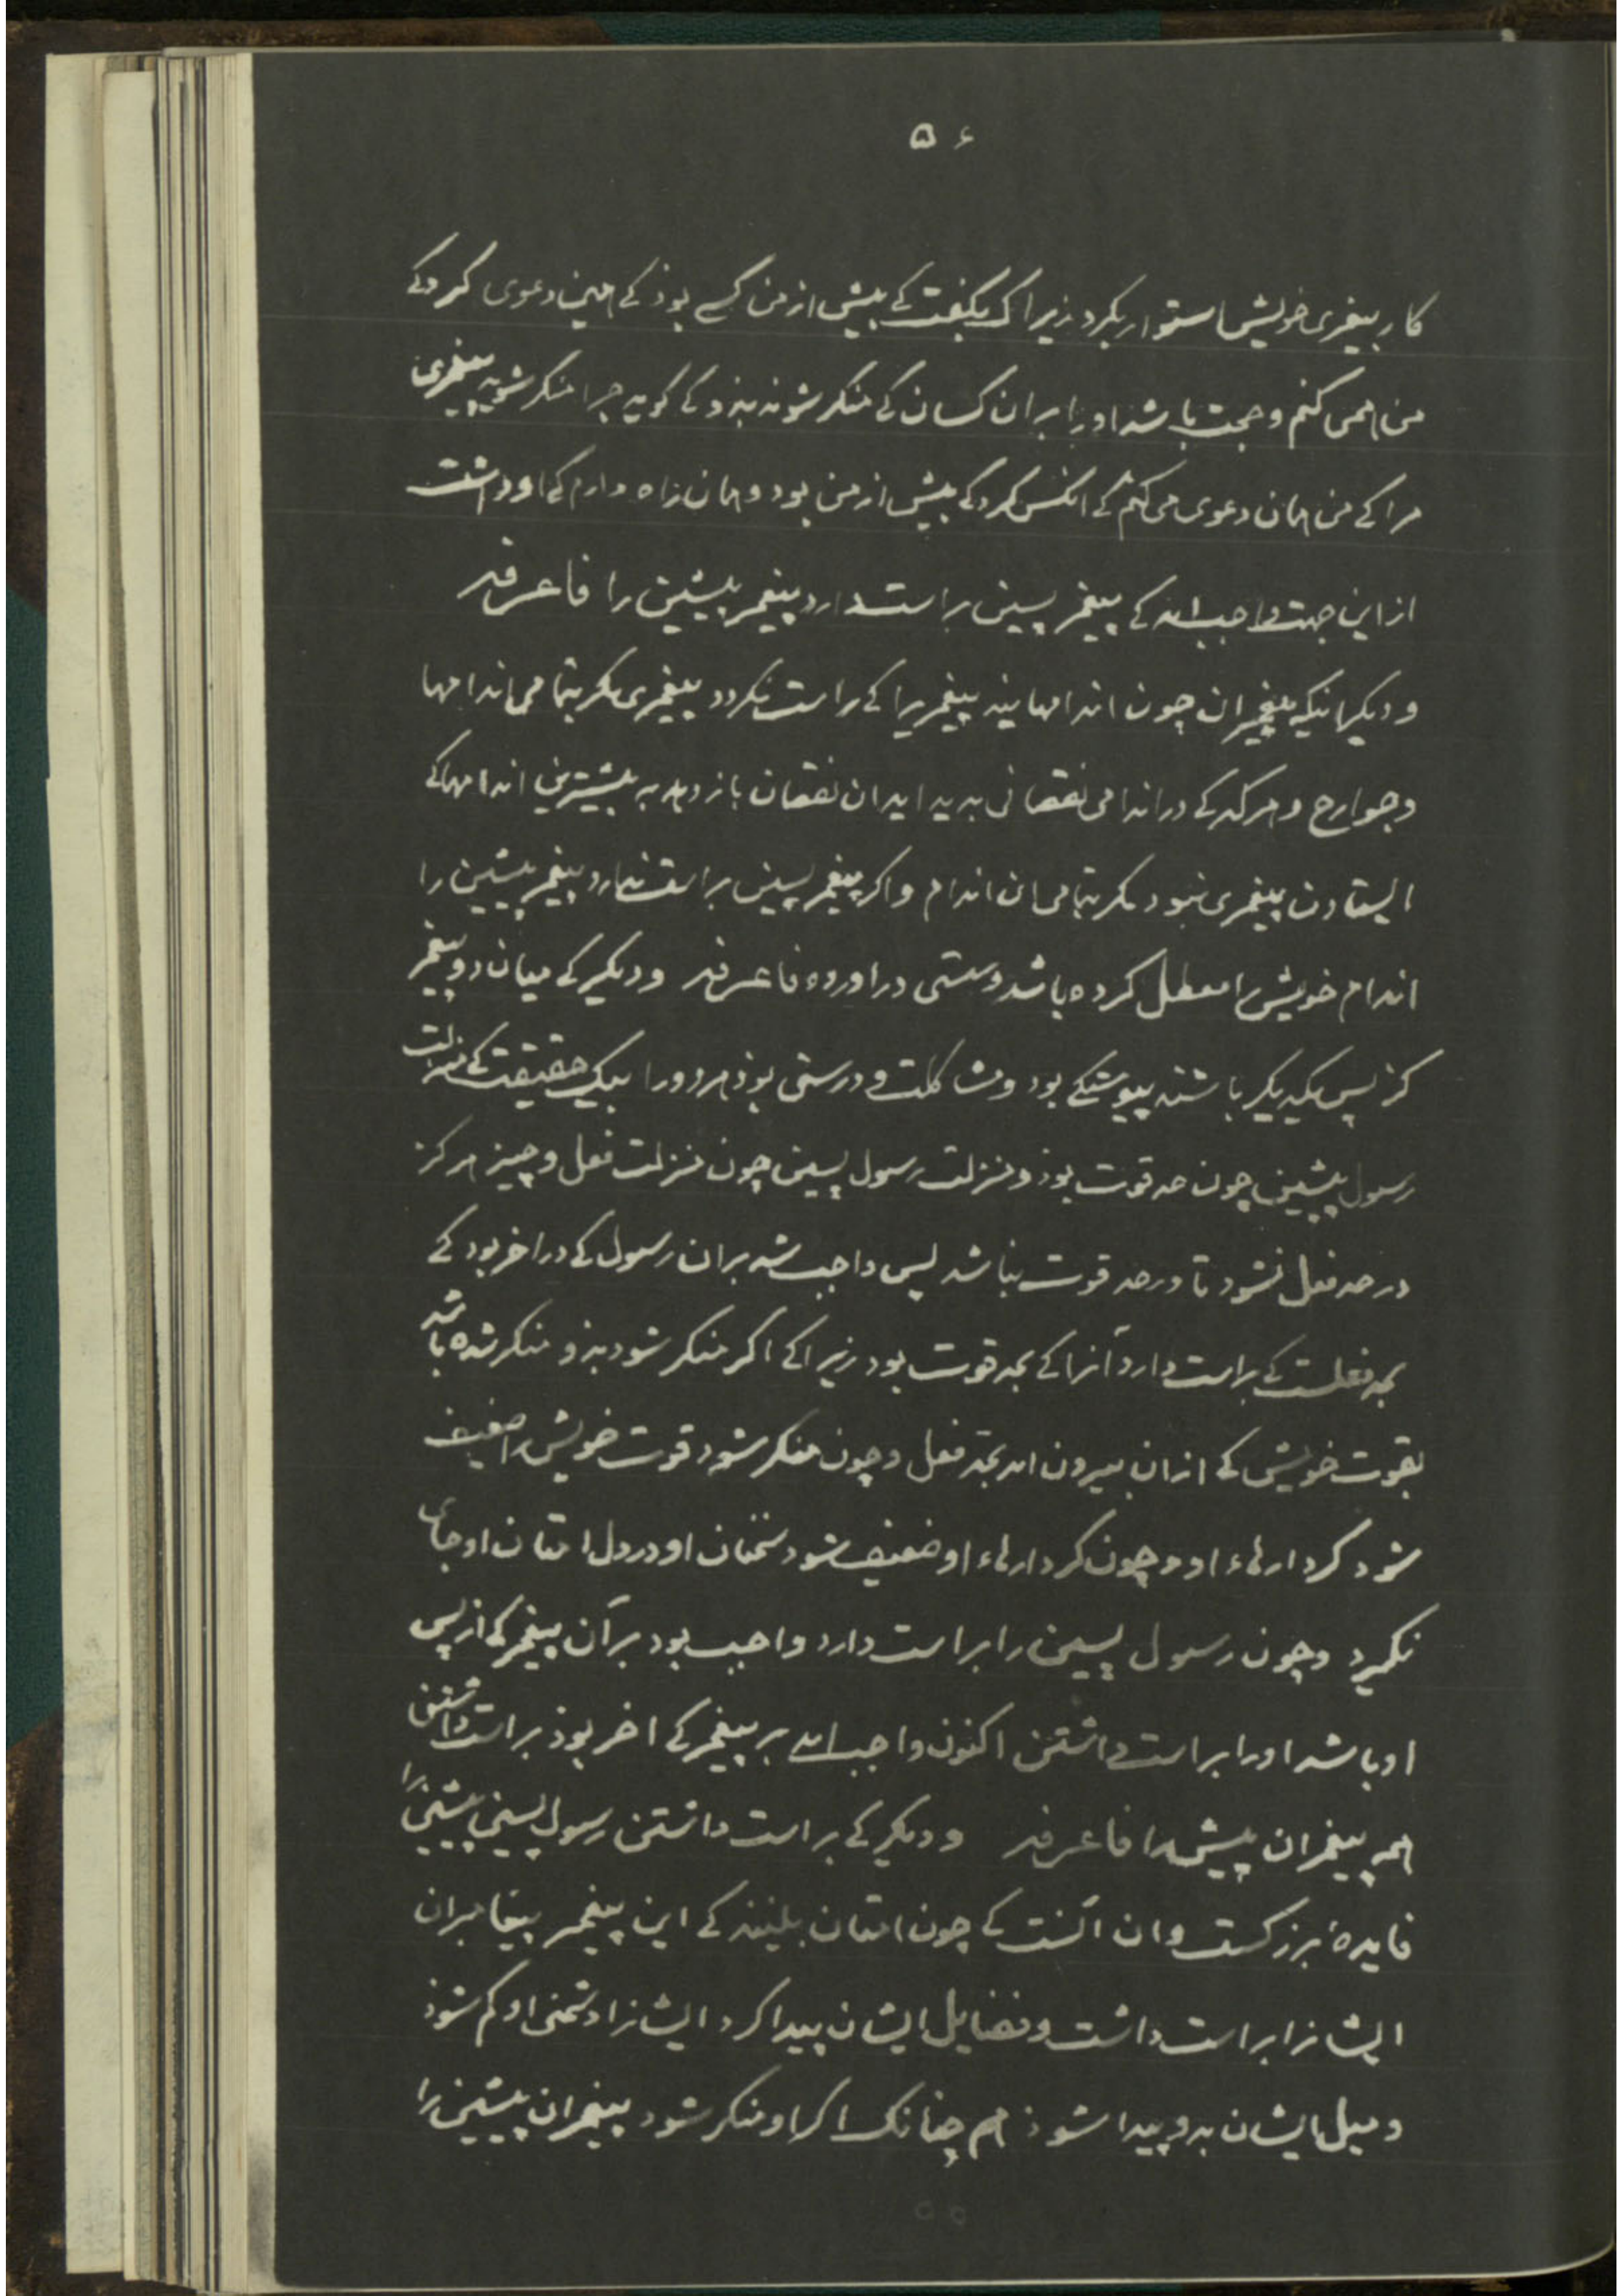 ۵۶
کار پیغمبری خویش استوار بکرد زیرا ک بگفت کے پیش از من کسے بوذ کے همین دعوی کرد کے
من همی کنم و حجت باشد اورا بران کسان کے منکر شوند بذو کے کوید چرا منکر شوید پیغمبری
مرا کے من همان دعوی می کنم کے انکس کرد کے پیش از من بود و همان راه دارم کے او داشت
از این جهت واجب اید کے پیغمبر پسین براست دارد پیغمبر پیشین را فاعرفه
و دیکر انکه پیغمبران چون اندامهایند پیغمبریرا کے راست نکردد پیغمبری مکر بتمامی اندامها
و جوارح و هر که کے در اندامی نقصانی بدید اید ان نقصان باز دهد به بیشترین اندامها کے
ایستادن پیغمبری نبود مکر بتمامی ان اندام و اکر پیغمبر پسین براست ندارد پیغمبر پیشین را
اندام خویش را معطل کرده باشد و سستی دراورده فاعرفه و دیکر کے میان دو پیغمبر
کز پس یکدیکر باشند پیوستکے بود و مشاکلت و درستی بوذ هر دو را بیک حقیقت کے منزلت
رسول پیشین چون حد قوت بوذ و منزلت رسول پسین چون منزلت فعل و چیز هرکز
در حد فعل نشود تا در حد قوت نباشد پس واجب شد بران رسول کے در اخر بود کے
بحد فعلست کے براست دارد آنرا کے بحد قوت بود زیرا کے اکر منکر شود بذو منکر شده باشد
بقوت خویش کے از ان بیرون امد بحد فعل و چون منکر شود قوت خویش را ضعیف
شود کردارهاء او و چون کردارهاء او ضعیف شود سخنان او در دل امتان او جای
نکیرد و چون رسول پسین را براست دارد واجب بود بر آن پیغمبر کے از پس
او باشد اورا براست داشتن اکنون واجب امد بر پیغمبر کے اخر بوذ براست داشتن
همه پیغمبران پیش را فاعرفه و دیکر کے براست داشتن رسول پسین پیشین را
فایدهٔ بزرکست و ان آنست کے چون امتان ببینند کے این پیغمبر پیغامبران
ایشانرا براست داشت و فضایل ایشان پیدا کرد ایشانرا دشمنی او کم شوذ
و میل ایشان بدو پیدا شوذ هم چنانک اکر او منکر شود پیغمبران پیشین را